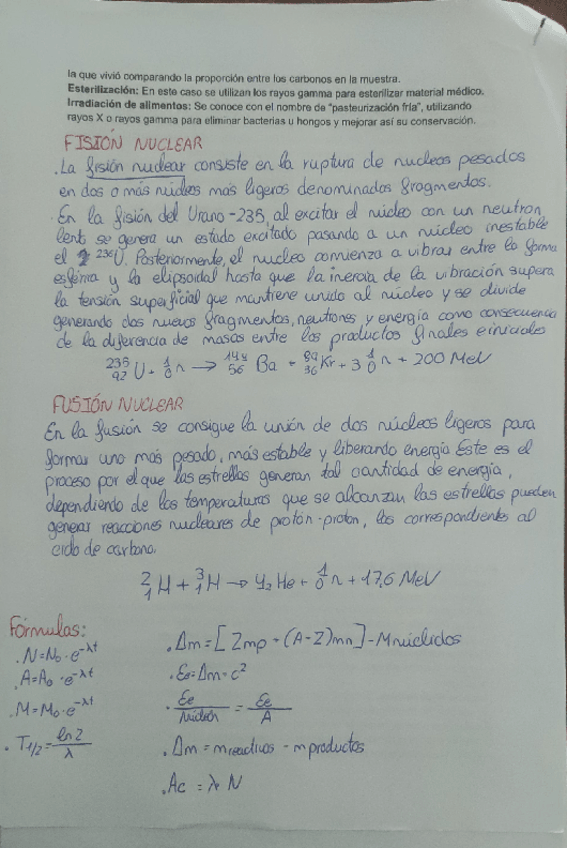 la que vivió comparando la proporción entre los carbonos en la muestra.
Esterilización: En este caso se utilizan los rayos gamma para esterilizar material médico.
Irradiación de alimentos: Se conoce con el nombre de "pasteurización fría", utilizando
rayos X o rayos gamma para eliminar bacterias u hongos y mejorar así su conservación.
FISIÓN NUCLEAR
. La fisión nuclear consiste en la ruptura de nucleos pesados
en dos o más núcleos más ligeros denominados fragmentos.
. En la fisión del Urano-235, al excitar el núcleo con un neutron
lento se genera un estado excitado pasando a un núcleo inestable
el ²³⁶U. Posteriormente, el nucleo comienza a vibrar entre la forma
esférica y la elipsoidal hasta que la inercia de la vibración supera
la tensión superficial que mantiene unido al núcleo y se divide
generando dos nuevos fragmentos, neutrones y energía como consecuencia
de la diferencia de masas entre los productos finales e iniciales
²³⁵₉₂U + ¹₀n → ¹⁴⁴₅₆Ba + ⁸⁹₃₆Kr + 3 ¹₀n + 200 MeV
FUSIÓN NUCLEAR
En la fusión se consigue la unión de dos núcleos ligeros para
formar uno más pesado, más estable y liberando energía Este es el
proceso por el que las estrellas generan tal cantidad de energía,
dependiendo de las temperaturas que se alcanzan las estrellas pueden
generar reacciones nucleares de protón-proton, los correspondientes al
ciclo de carbono.
²₁H + ³₁H → 4₂He + ¹₀n + 17,6 MeV
Fórmulas:
. N = N₀ · e^-λt
. A = A₀ · e^-λt
. M = M₀ · e^-λt
. T1/2 = ln 2 / λ
. Δm = [Zmp + (A-Z)mn] - Mnúclidos
. Ee = Δm · c²
. Ee / Núcleón = Ee / A
. Δm = m reactivos - m productos
. Ac = λ N